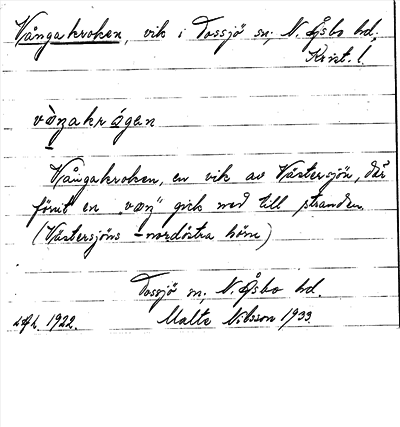 Vångakroken, vik i Tossjö sn, N. Åsbo hd,
Krist. l.
vàŋakrógen
Vångakroken, en vik av Västersjön, där
förut en „våŋ" gick ned till stranden
(Västersjöns nordöstra hörn)
Tossjö sn, N. Åsbo hd.
1922. Malte Nilsson 1933.